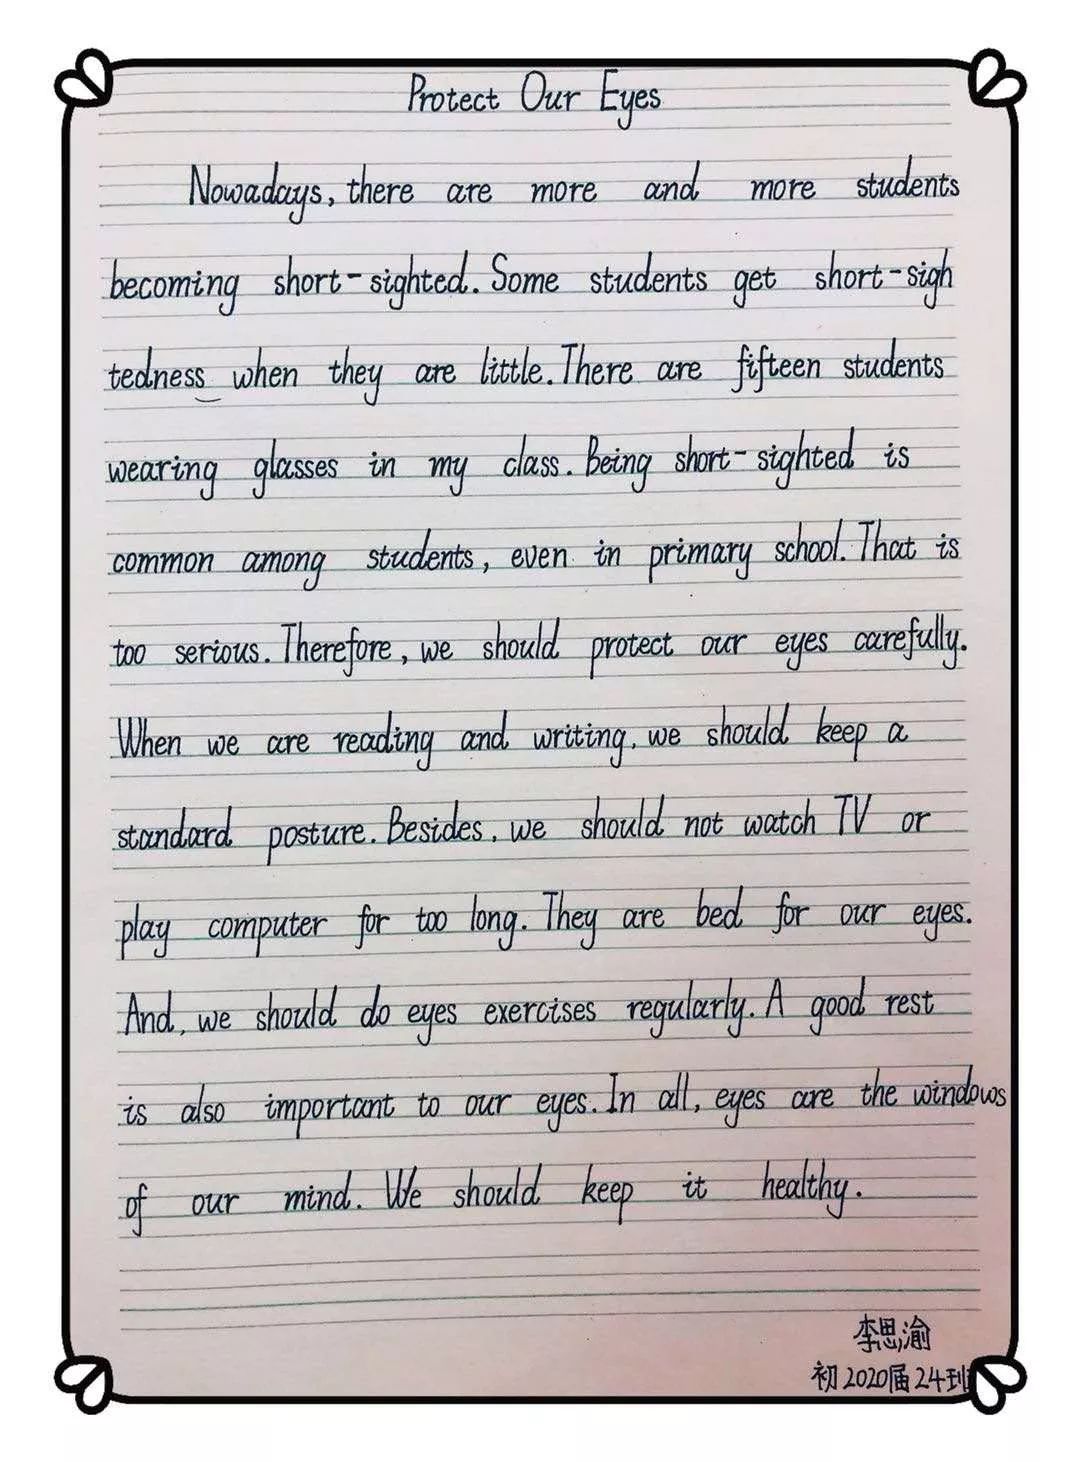 Protect Our Eyes
Nowadays, there are more and more students
becoming short-sighted. Some students get short-sigh
tedness when they are little. There are fifteen students
wearing glasses in my class. Being short-sighted is
common among students, even in primary school. That is
too serious. Therefore, we should protect our eyes carefully.
When we are reading and writing, we should keep a
standard posture. Besides, we should not watch TV or
play computer for too long. They are bed for our eyes.
And, we should do eyes exercises regularly. A good rest
is also important to our eyes. In all, eyes are the windows
of our mind. We should keep it healthy.
李思渝
初2020届24班